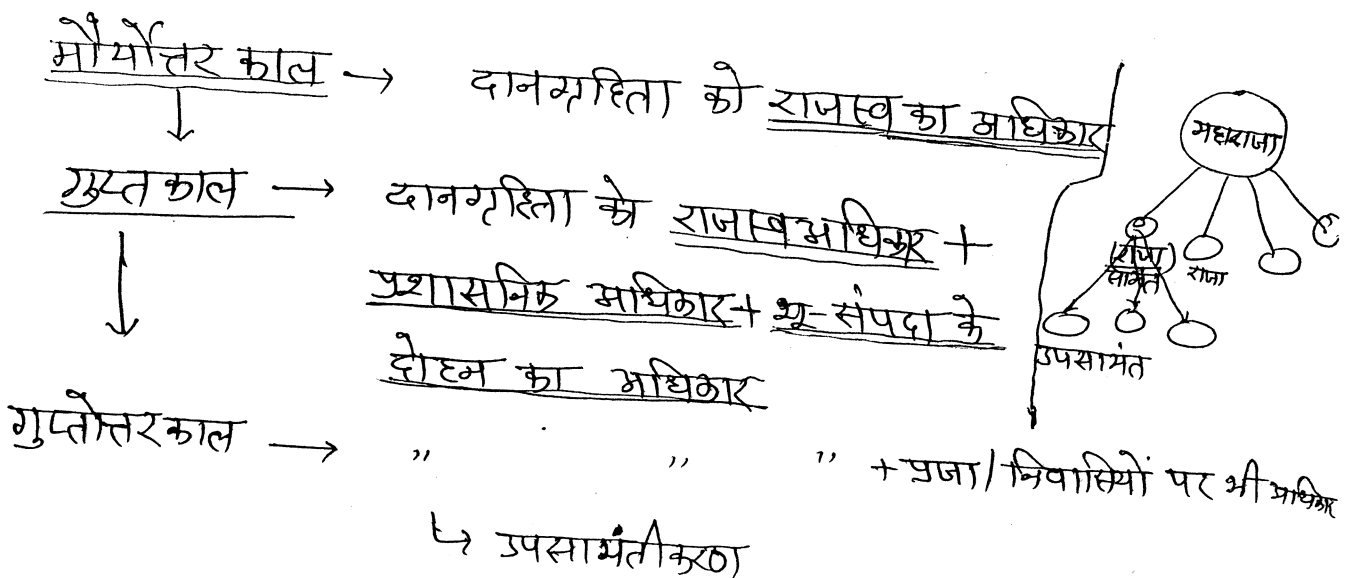 मौर्योत्तर काल → दानगृहिता को राजस्व का अधिकार
गुप्त काल → दानगृहिता को राजस्व अधिकार +
प्रशासनिक अधिकार + भू-संपदा के
दोहन का अधिकार
गुप्तोत्तर काल → " " " + प्रजा/निवासियों पर भी अधिकार
↳ उपसामंतीकरण
महाराजा
(राजा)
सामंत
राजा
उपसामंत